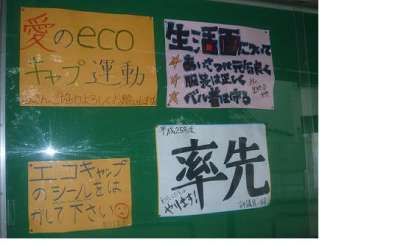 愛のeco
キャプ運動
生活面について
あいさつは元気良く
服装は正しく
ベル着は守る
エコキャップ
のシールをは
がして下さい
平成25年度
率先
やります!